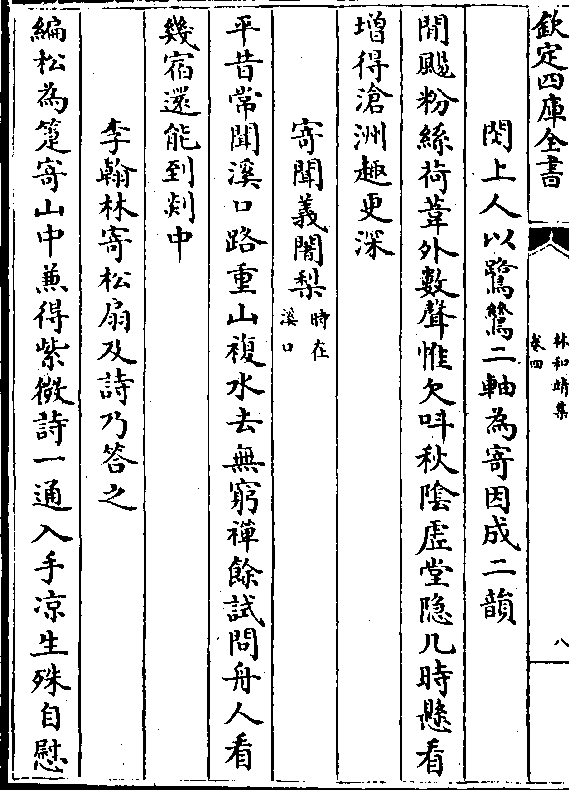 欽定四庫全書
林和靖集
卷四
八
閔上人以鷺鷥二軸為寄因成二韻
閒颺粉絲荷葦外數聲惟欠呌秋陰虛堂隐几時懸看
增得滄洲趣更深
寄聞義闍梨時在溪口
平昔常聞溪口路重山複水去無窮禪餘試問舟人看
幾宿還能到剡中
李翰林寄松扇及詩乃答之
編松為箑寄山中兼得紫微詩一通入手凉生殊自慰